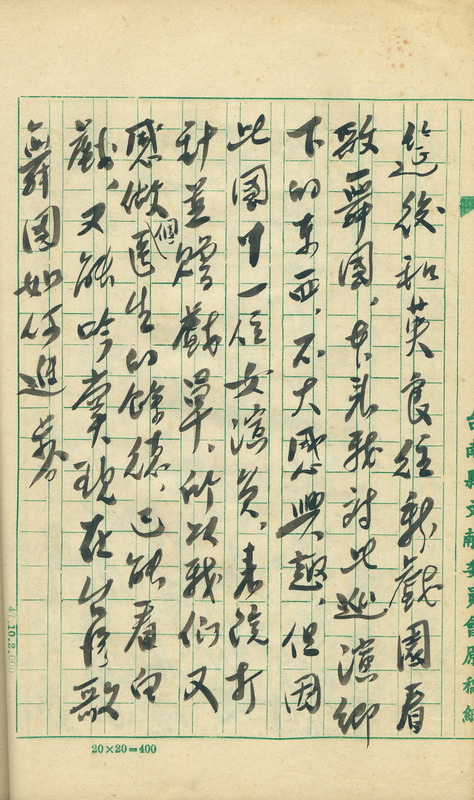 筵後和英良往新戲園看
歌舞團,本來我對此巡演鄉
下的東西,不大感興趣,但因
此團中一位女演員,來院打
針並贈戲單,所以我們又
感做個医生的餘德,已能看白
戲,又能吟賞現在台湾歌
舞團如何進步
台南縣文献委員會原稿紙
20×20=400